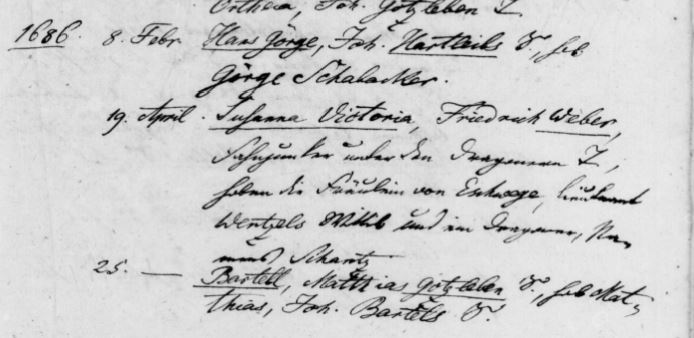 Ortheia, Joh. Götzleben T.
1686. 8. Febr. Hans Görge, Joh. Hartleibs S., hob
Görge Schalacker.
19. April. Susanna Victoria, Friedrich Weber,
Fahnjunker unter den Dragonern T.,
hoben die Fräulein von Eschwege, lieutenant
Wentzels Wittib und ein Dragoner, Na-
mens Schantz
25. — Bartell, Matthias Götzleben S., hob Mat-
thias, Joh. Bartels S.